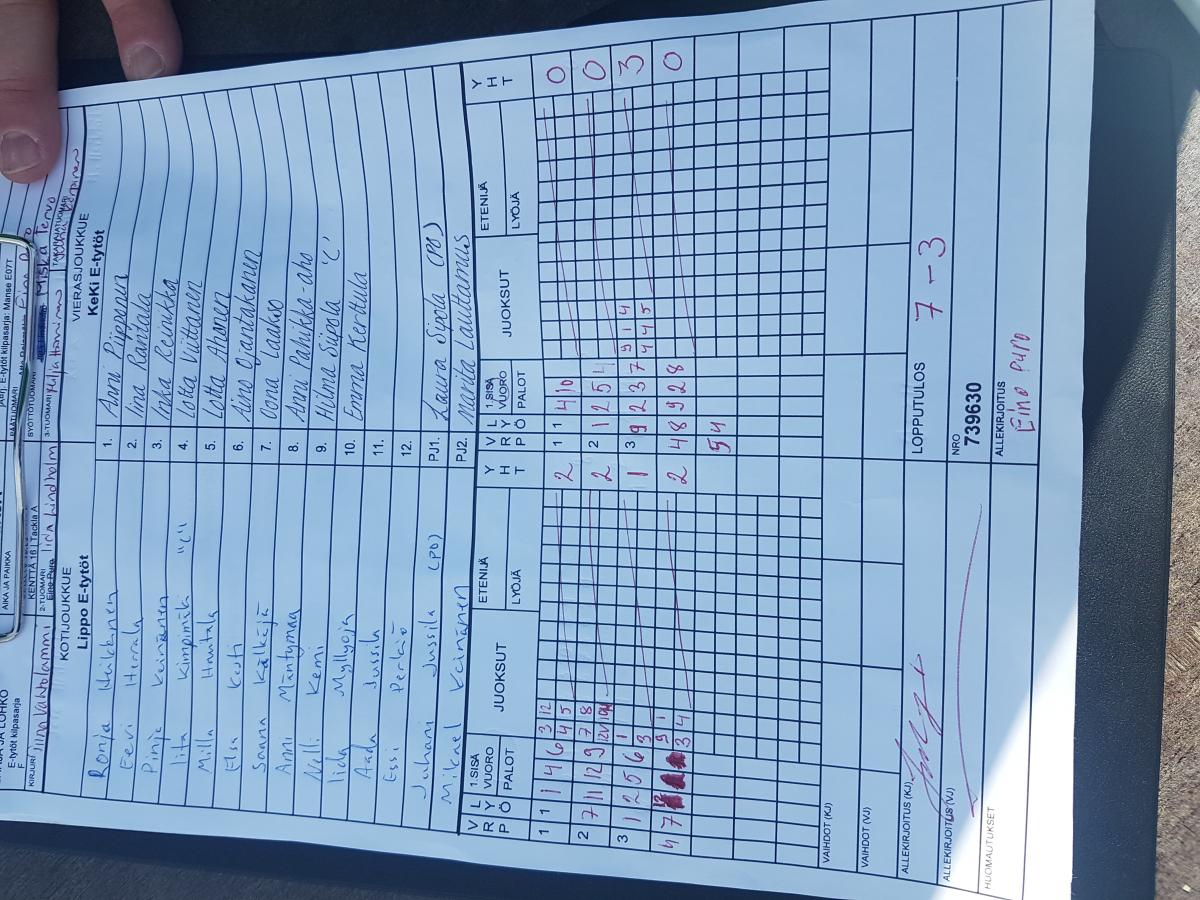 AIKA JA PAIKKA
E-tytöt kilpasarja
F
KENTTÄ 16 | Tackla A
E-tytöt kilpasarja: Manse E07T
PÄÄTUOMARI
SYÖTTÖTUOMARI
KIRJURI
2-TUOMARI Iida Lindholm
3-TUOMARI
TAKARAJATUOMARI
Miska Tervo
KOTIJOUKKUE
VIERASJOUKKUE
Lippo E-tytöt
KeKi E-tytöt
Ronja Heikkinen 1. Anni Piipponen
Eevi Herrala 2. Iina Rantala
Pinja Keinänen 3. Inka Reinikka
Iita Kimpimäki "C" 4. Lotta Viittanen
Milla Hautala 5. Lotta Ahonen
Elsa Kuuti 6. Aino Ojantakanen
Saana Kälkäjä 7. Oona Laakso
Anni Mäntymaa 8. Anni Pahikka-aho
Nelli Kemi 9. Hilma Siipola "C"
Iida Myllyoja 10. Emma Kerttula
Aada Jussila 11.
Essi Perkiö 12.
Juhani Jussila (PO) PJ1. Laura Sipola (PO)
Mikael Keinänen PJ2. Marita Lauttamus
V R P L Y Ö 1.SISÄ VUORO PALOT JUOKSUT ETENIJÄ LYÖJÄ Y H T V R P L Y Ö 1.SISÄ VUORO PALOT JUOKSUT ETENIJÄ LYÖJÄ Y H T
1 1 1 4 6 3 12 2 1 1 4 10 0
4 5
2 7 11 12 9 7 8 2 2 1 2 5 4 0
3 1 2 5 6 1 1 3 9 2 3 7 9 1 4 3
3 4 4 5
4 7 9 1 2 4 8 9 2 8 0
3 4
5 4
VAIHDOT (KJ)
VAIHDOT (VJ)
ALLEKIRJOITUS (KJ) LOPPUTULOS 7 - 3
ALLEKIRJOITUS (VJ) NRO
739630
HUOMAUTUKSET ALLEKIRJOITUS
Eino Puro